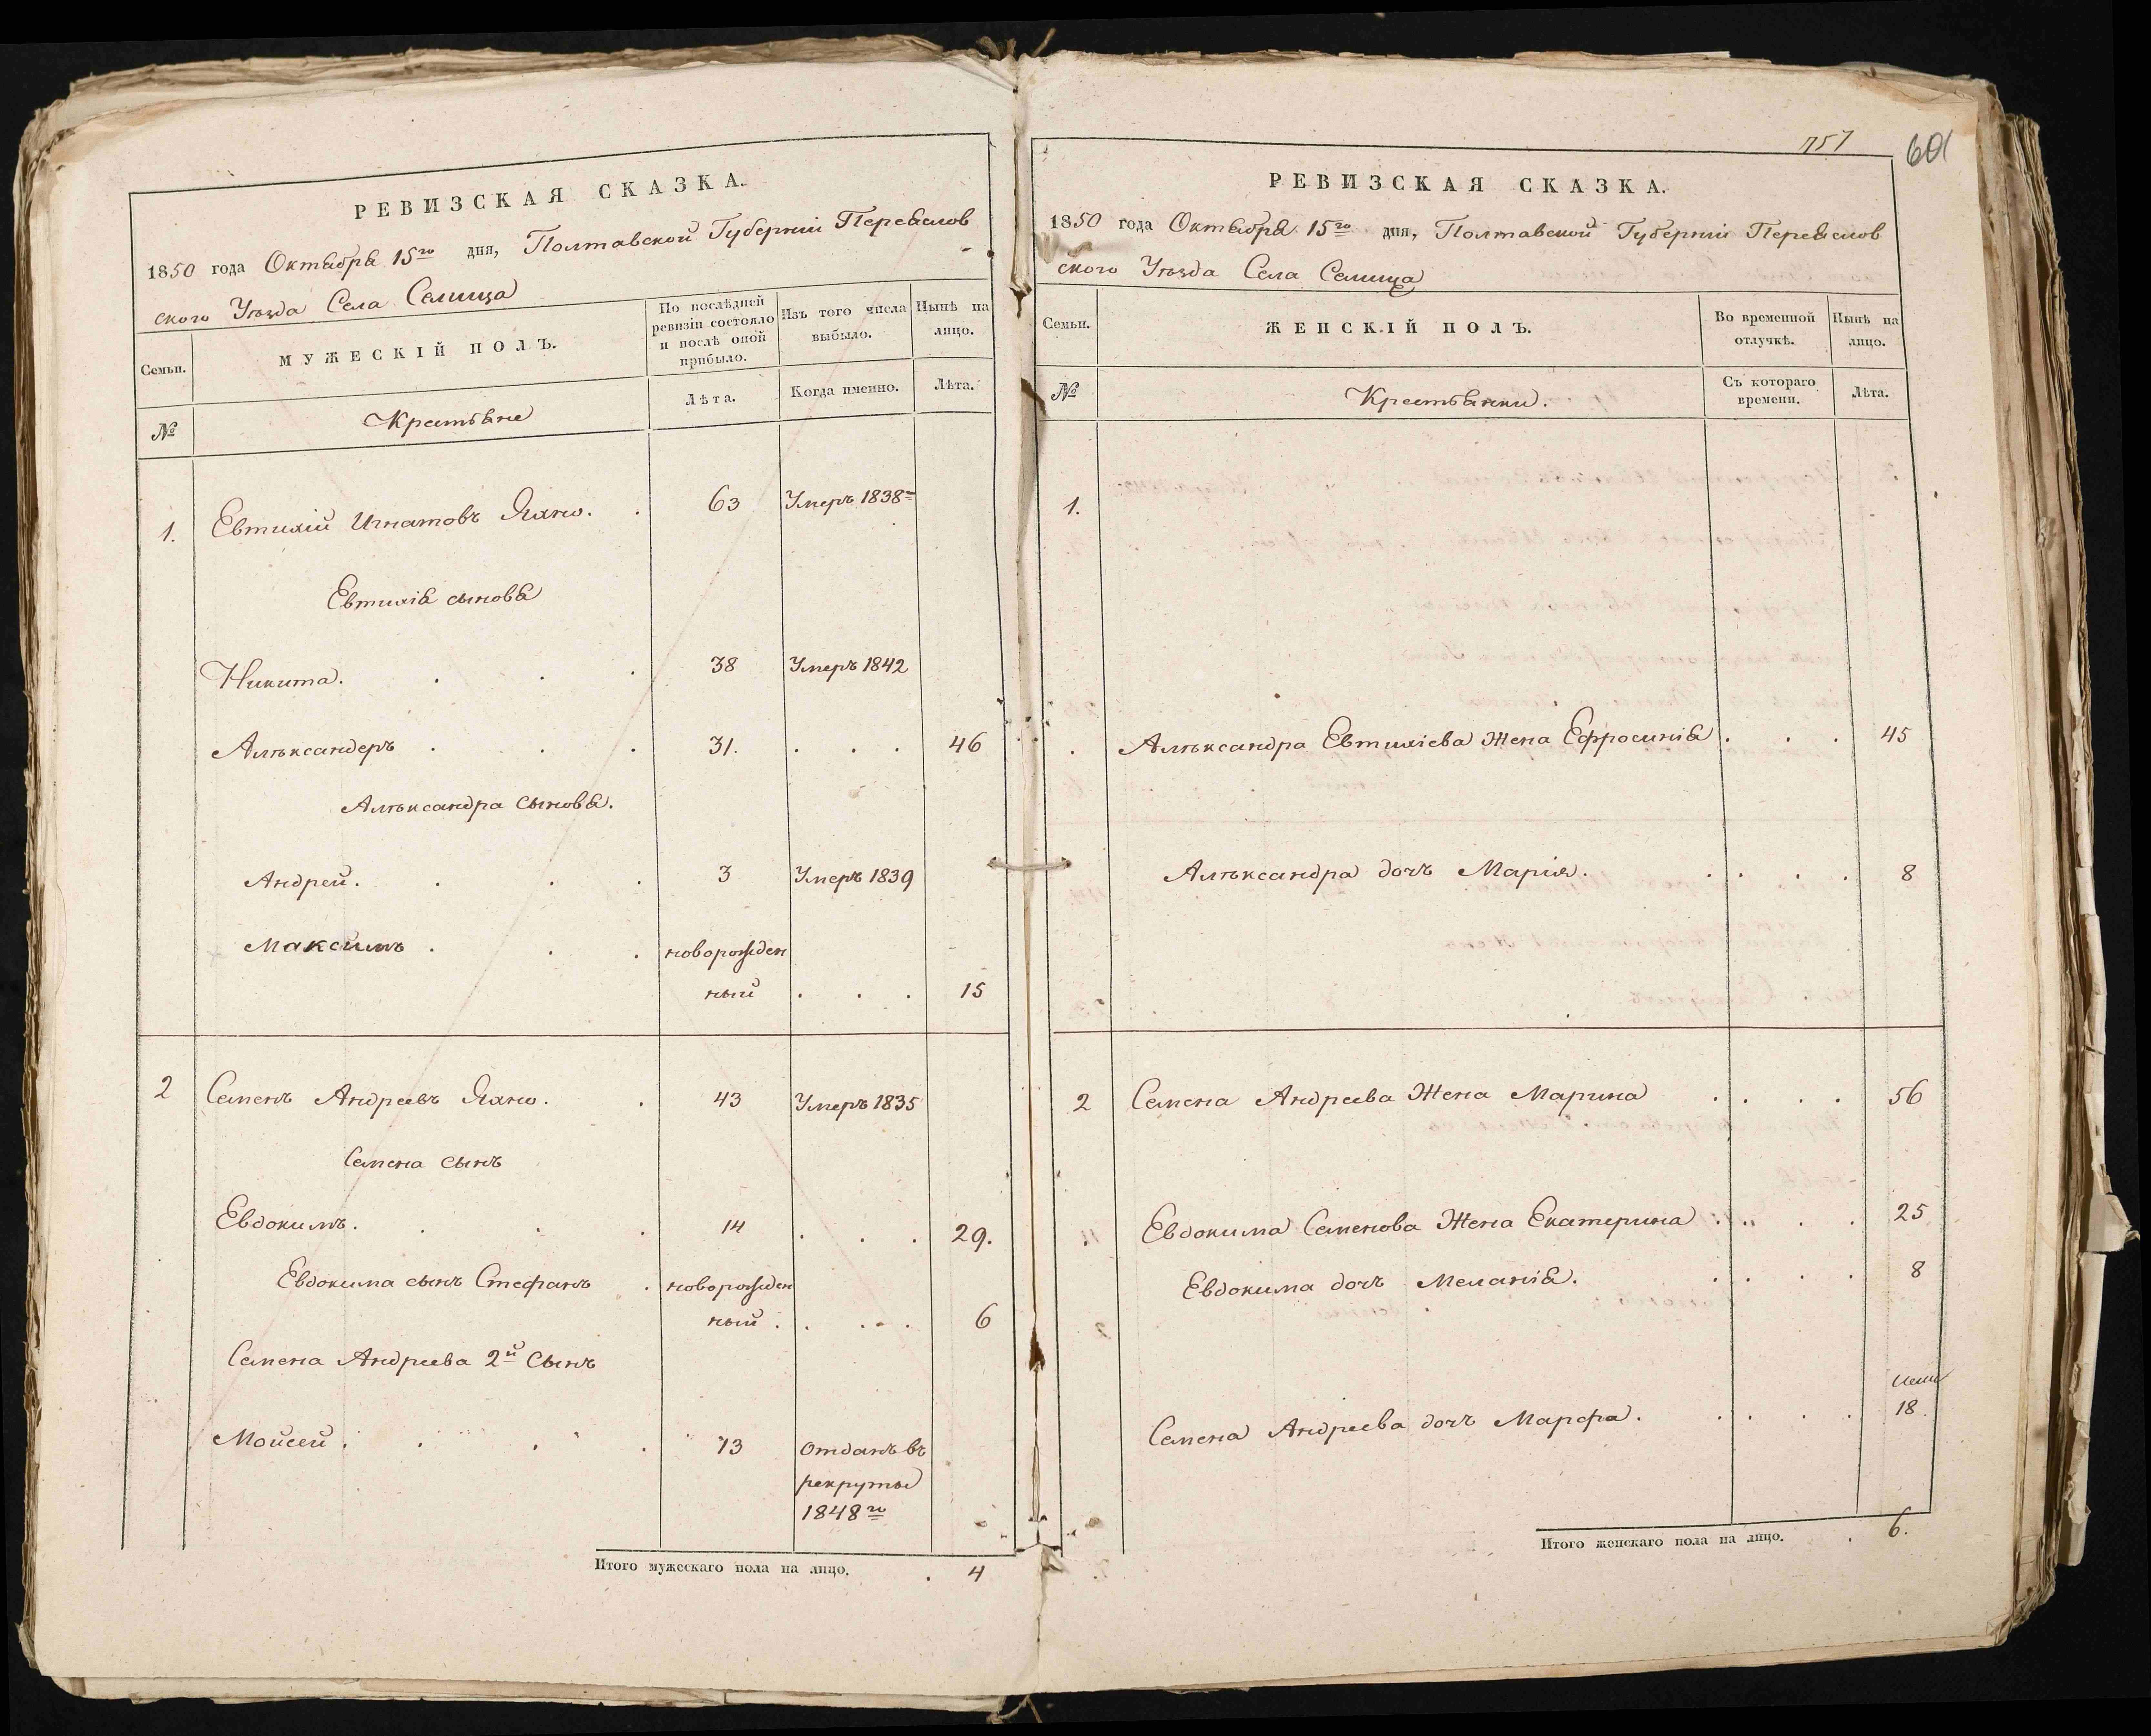 РЕВИЗСКАЯ СКАЗКА.
1850 года Октября 15го дня, Полтавской Губерніи Переяслов
ского Уѣзда Села Селища
Семьи.
МУЖЕСКІЙ ПОЛЪ.
По послѣдней
ревизіи состояло
и послѣ оной
прибыло.
Изъ того числа
выбыло.
Нынѣ на
лицо.
№
Крестьяне
Лѣта.
Когда именно.
Лѣта.
1. Евтихій Игнатовъ Яхно. 63 Умеръ 1838го
Евтихія сыновья
Никита. 38 Умеръ 1842
Алѣксандеръ 31. 46
Алѣксандра сыновья.
Андрей. 3 Умеръ 1839
Максимъ новорожден
ный 15
2 Семенъ Андреевъ Яхно. 43 Умеръ 1835
Семена сынъ
Евдокимъ. 14 29.
Евдокима сынъ Стефанъ новорожден
ный 6
Семена Андреева 2й Сынъ
Мойсей. 13 отданъ въ
рекруты
1848го
Итого мужескаго пола на лицо. 4
757
601
РЕВИЗСКАЯ СКАЗКА.
1850 года Октября 15го дня, Полтавской Губерніи Переяслов
ского Уѣзда Села Селища
Семьи.
ЖЕНСКІЙ ПОЛЪ.
Во временной
отлучкѣ.
Нынѣ на
лицо.
№
Крестьянки.
Съ котораго
времени.
Лѣта.
1.
Алѣксандра Евтихіева Жена Ефросинія 45
Алѣксандра дочъ Марія. 8
2 Семена Андреева Жена Марина 56
Евдокима Семенова Жена Екатерина 25
Евдокима дочъ Меланія. 8
Семена Андреева дочъ Марфа. 18
Итого женскаго пола на лицо. 6.